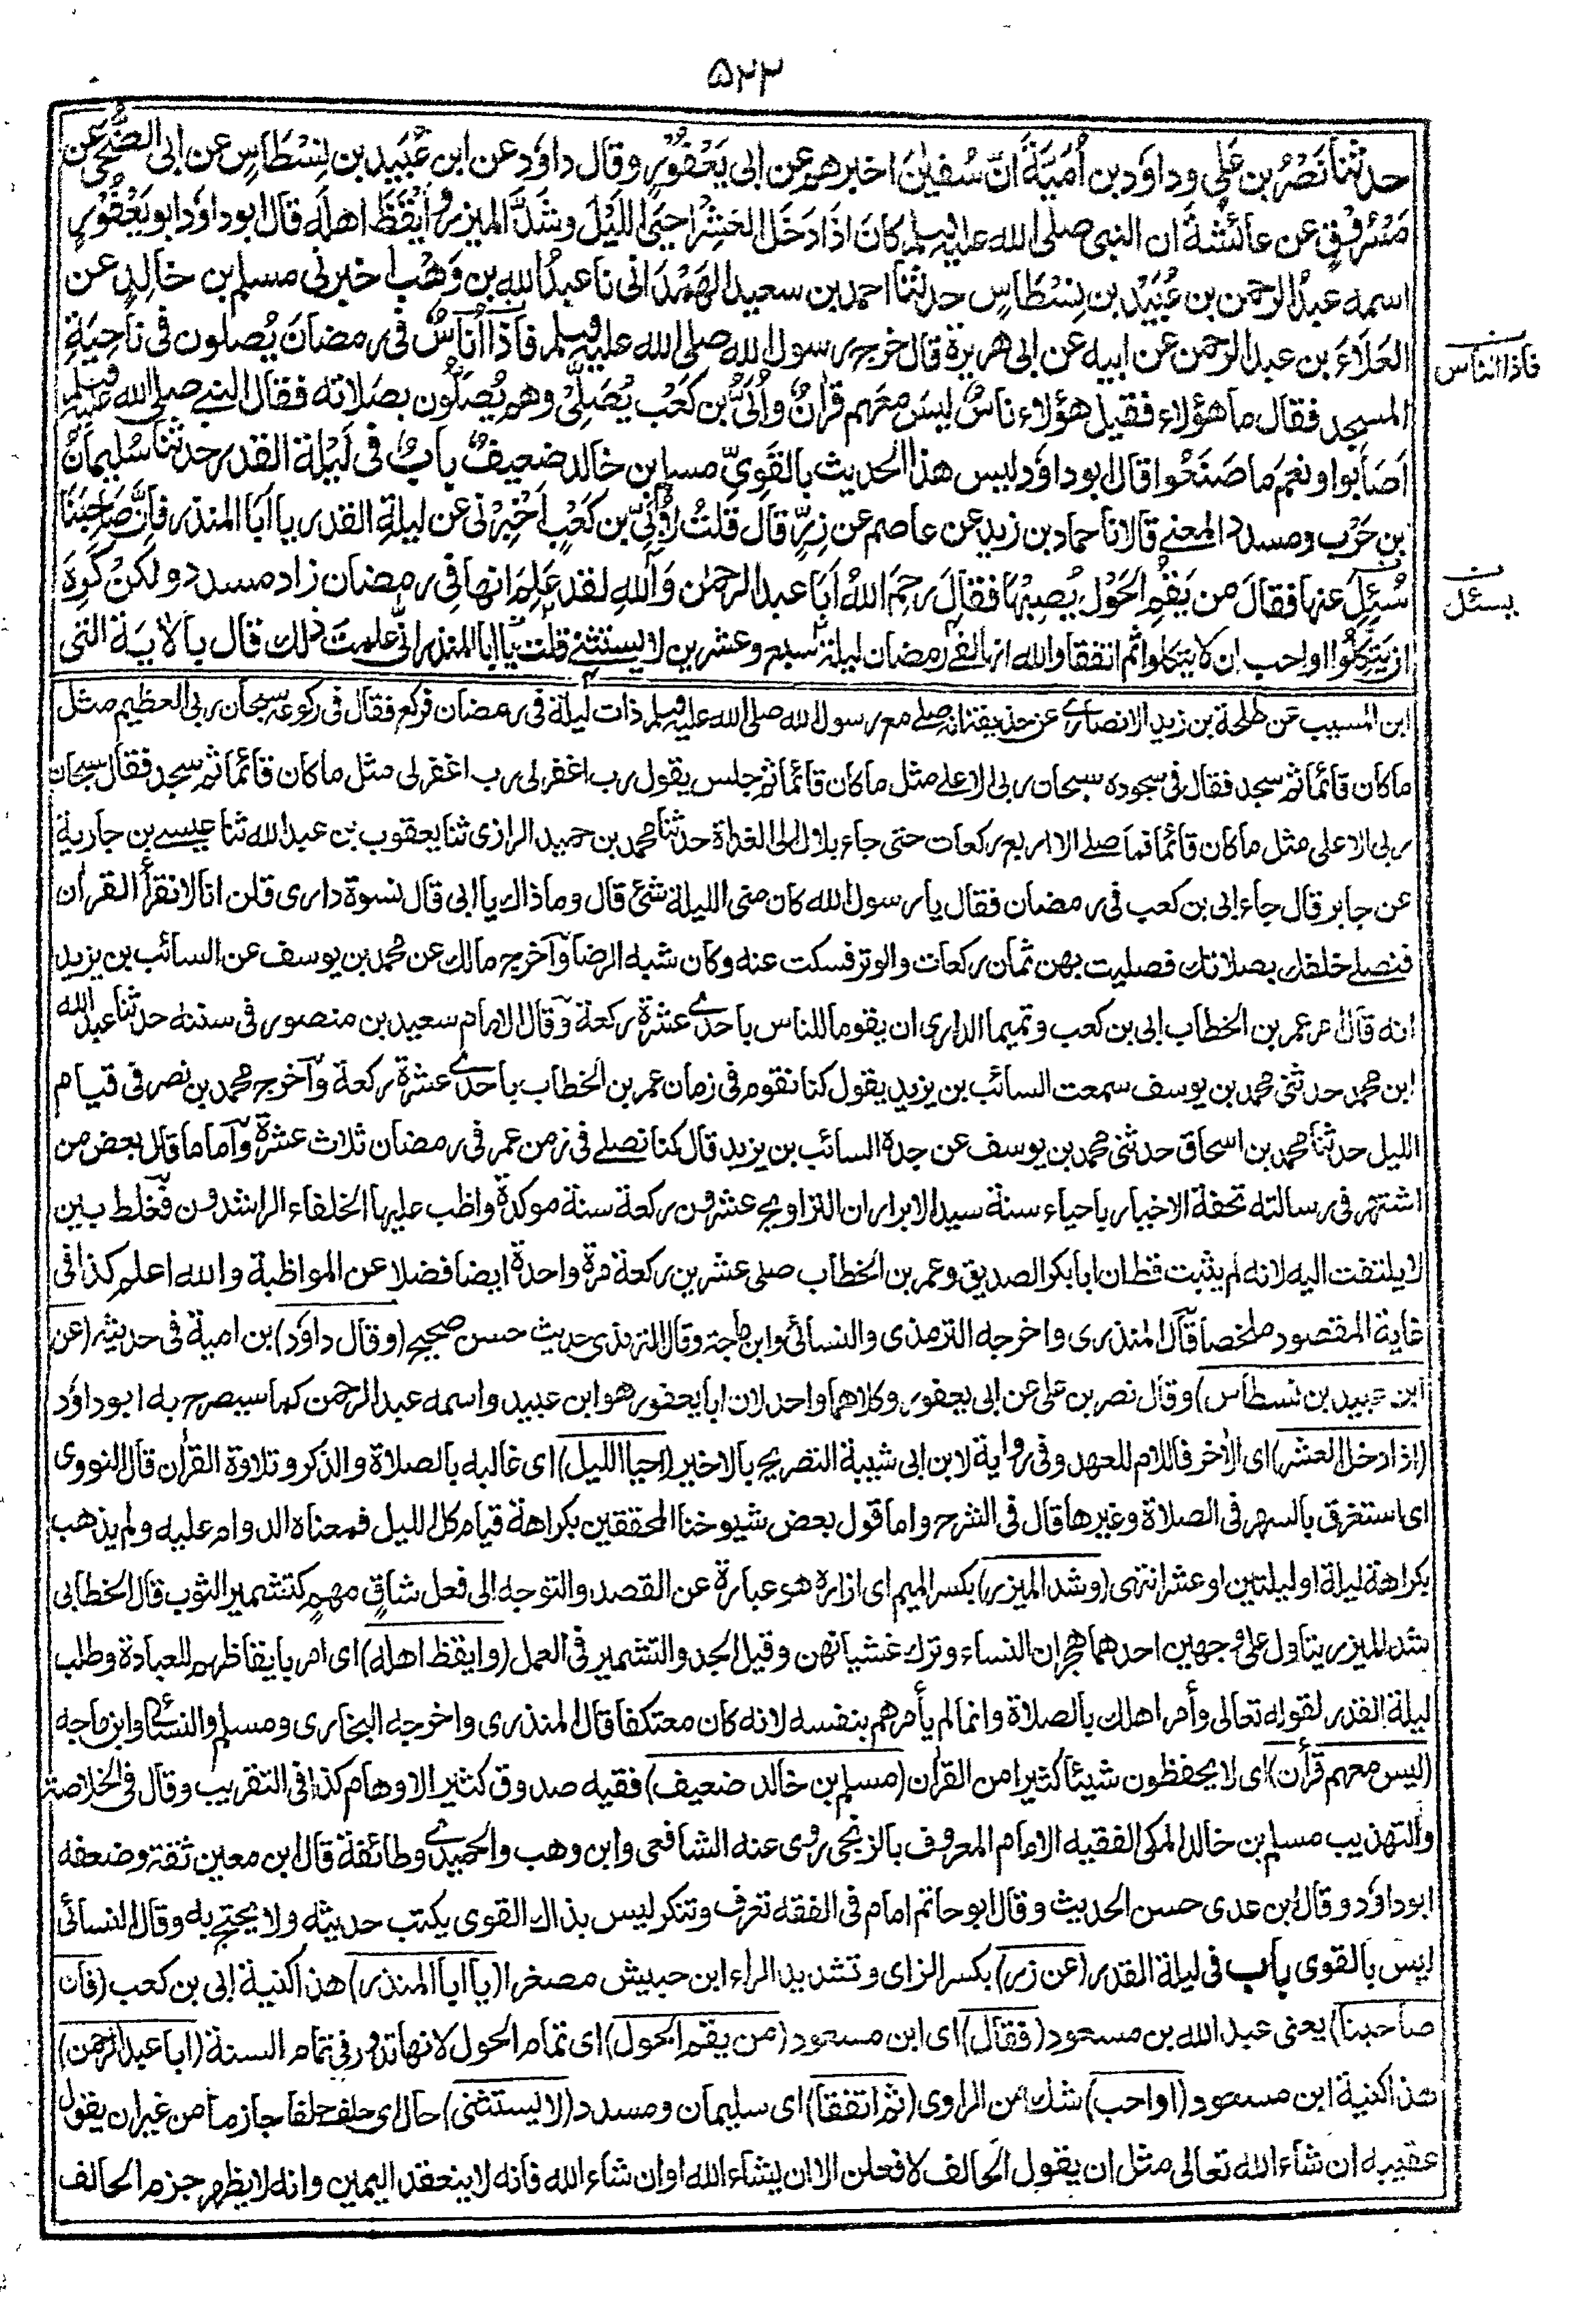 ۵۲۳
حدثنا نَصْرُ بن عَلِي وداوٗد بن اُمَيَّةَ اَنَّ سُفيٰنَ اخبرهم عن ابى يَعْفُوْرٍ وقال داوٗد عن ابن عُبَيد بن نِسْطَاسٍ عن ابى الضُّحٰى عن
مَسْرُوْقٍ عن عائشةَ ان النبى صلى الله عليه وسلم كانَ اذَا دَخَلَ العَشْرُ احيَى الليْلَ وشَدَّ الميزر واَيْقَظَ اهلَه قال ابو داوٗد ابو يَعْفُوْرٍ
اسمه عبدُ الرحمن بن عُبَيْد بن نِسْطَاسٍ حدثنا احمد بن سعيد الهَمْدَانى نا عبدُ اللهِ بن وَهْب اخبرنى مسلم بن خَالِدٍ عن
العَلَاءَ بن عبد الرحمن عن ابيه عن ابى هريرة قال خرج رسول الله صلى الله عليه وسلم فاذا اُنَاسٌ فى رمضانَ يُصلون فى نَاحِيَةِ
فاذا الناس
المسجد فقال ما هؤلاء فقيل هؤلاء ناسٌ ليسَ معَهم قراٰنٌ واُبَىُّ بن كَعْب يُصَلِّىْ وهم يُصَلُّون بصَلاته فقال النبي صلى الله عليه وسلم
اَصَابوا ونعمَ ما صَنَعُوا قال ابو داوٗد ليس هذا الحديث بالقَوِىِّ مسلم بن خالد ضعيفٌ بابٌ فى لَيْلة القدر حدثنا سُلَيمانُ
بن حَرْب ومسدد المعنے قالا نا حماد بن زيد عن عاصم عن زِرٍّ قال قلتُ لاُبَىّ بن كَعْبٍ اَخْبِرْنى عن ليلةِ القدر يا اَبَا المنذر فاِنَّ صَاحِبَنَا
سُئِلَ عنها فقال من يَقُمِ الحَوْل يُصِبْها فقالَ رحِمَ اللهُ اَبَا عبد الرحمٰن وَاللهِ لقد عَلِمَ انها فى رمضان زاد مسدد ولكنْ كَرِهَ
يسئل
ان يَتَّكِلُوا او احب ان لا يتكلوا ثم اتفقا والله انها لفے رمضان ليلةَ سبع وعشرين لا يستثنے قلت يا ابا المنذر انّٰى علمتَ ذلك قال بالاٰيَة التى
ابن المسيب عن طلحة بن زيد الانصارى عن حذيفة انه صلے مع رسول الله صلى الله عليه وسلم ذات ليلة فى رمضان فركع فقال فى ركوعه سبحان ربى العظيم مثل
ما كان قائما ثم سجد فقال فى سجوده سبحان ربى الاعلے مثل ما كان قائما ثم جلس يقول رب اغفر لى رب اغفر لى مثل ما كان قائما ثم سجد فقال سبحان
ربى الاعلى مثل ما كان قائما فما صلے الا اربع ركعات حتى جاء بلال الى الغداة حدثنا محمد بن حميد الرازى ثنا يعقوب بن عبد الله ثنا عيسے بن جارية
عن جابر قال جاء ابى بن كعب فى رمضان فقال يا رسول الله كان منى الليلة شئ قال وما ذاك يا ابى قال نسوة دارى قلن انا لا نقرأ القراٰن
فنصلے خلفك بصلاتك فصليت بهن ثمان ركعات والوتر فسكت عنه وكان شبه الرضا واٰخرج مالك عن محمد بن يوسف عن السائب بن يزيد
انه قال امر عمر بن الخطاب ابى بن كعب وتميما الدارى ان يقوما للناس باحدے عشرة ركعة وقال الامام سعيد بن منصور فى سننه حدثنا عبد الله
ابن محمد حدثنى محمد بن يوسف سمعت السائب بن يزيد يقول كنا نقوم فى زمان عمر بن الخطاب باحدے عشرة ركعة واٰخرج محمد بن نصر فى قيام
الليل حدثنا محمد بن اسحاق حدثنى محمد بن يوسف عن جده السائب بن يزيد قال كنا نصلے فى زمن عمر فى رمضان ثلاث عشرة واما ما قال بعض من
اشتهر فى رسالته تحفة الاخيار باحياء سنة سيد الابرار ان التراويح عشرون ركعة سنة موكدة واظب عليها الخلفاء الراشدون فخلط بين
لا يلتفت اليه لانه لم يثبت قط ان ابا بكر الصديق وعمر بن الخطاب صلى عشرين ركعة مرة واحدة ايضا فضلا عن المواظبة والله اعلم كذا فى
غاية المقصود ملخصا قال المنذرى واخرجه الترمذى والنسائى وابن ماجة وقال الترمذى حديث حسن صحيح (وقال داوٗد) بن امية فى حديثه (عن
ابن عبيد بن نسطاس) وقال نصر بن على عن ابى يعفور وكلاهما واحد لان ابا يعفور هو ابن عبيد واسمه عبد الرحمن كما سيصرح به ابو داوٗد
(اذا دخل العشر) اى الاٰخر فاللام للعهد وفى رواية لابن ابى شيبة التصريح بالاخير (احيا الليل) اى غالبه بالصلاة والذكر وتلاوة القرآن قال النووى
اى استغرق بالسهر فى الصلاة وغيرها قال فى الشرح واما قول بعض شيوخنا المحققين بكراهة قيام كل الليل فمعناه الدوام عليه ولم يذهب
بكراهة ليلة او ليلتين او عشر انتهى (وشد الميزر) بكسر الميم اى ازاره هو عبارة عن القصد والتوجه الى فعل شاقٍ مهمٍ كتشمير الثوب قال الخطابى
شد الميزر يتاول على وجهين احدهما هجران النساء وترك غشيانهن وقيل الجد والتشمير فى العمل (وايقظ اهله) اى امر بايقاظهم للعبادة وطلب
ليلة القدر لقوله تعالى وأمر اهلك بالصلاة وانما لم يأمرهم بنفسه لانه كان معتكفا قال المنذرى واخرجه البخارى ومسلم والنسائى وابن ماجه
(ليس معهم قرأن) اى لا يحفظون شيئا كثيرا من القرأن (مسلم بن خالد ضعيف) فقيه صدوق كثير الاوهام كذا فى التقريب وقال فى الخلاصة
والتهذيب مسلم بن خالد المكى الفقيه الامام المعروف بالزنجى روى عنه الشافعى وابن وهب والحميدے وطائفة قال ابن معين ثقة وضعفه
ابو داوٗد وقال ابن عدى حسن الحديث وقال ابو حاتم امام فى الفقه تعرف وتنكر ليس بذاك القوى يكتب حديثه ولا يحتج به وقال النسائى
ليس بالقوى باب فى ليلة القدر (عن زر) بكسر الزاى وتشديد الراء ابن حبيش مصغرا (يا ابا المنذر) هذا كنية ابى بن كعب (فان
صاحبنا) يعنى عبد الله بن مسعود (فقال) اى ابن مسعود (من يقم الحول) اى تمام الحول لانها تدور فى تمام السنة (ابا عبد الرحمن)
هذا كنية ابن مسعود (او احب) شك من الراوى (ثم اتفقا) اى سليمان ومسدد (لا يستثنى) حال اى حلف حلفا جازما من غير ان يقول
عقيبه ان شاء الله تعالى مثل ان يقول الحالف لافعلن الا ان يشاء الله او ان شاء الله فانه لا ينعقد اليمين وانه لا يظهر جزم الحالف